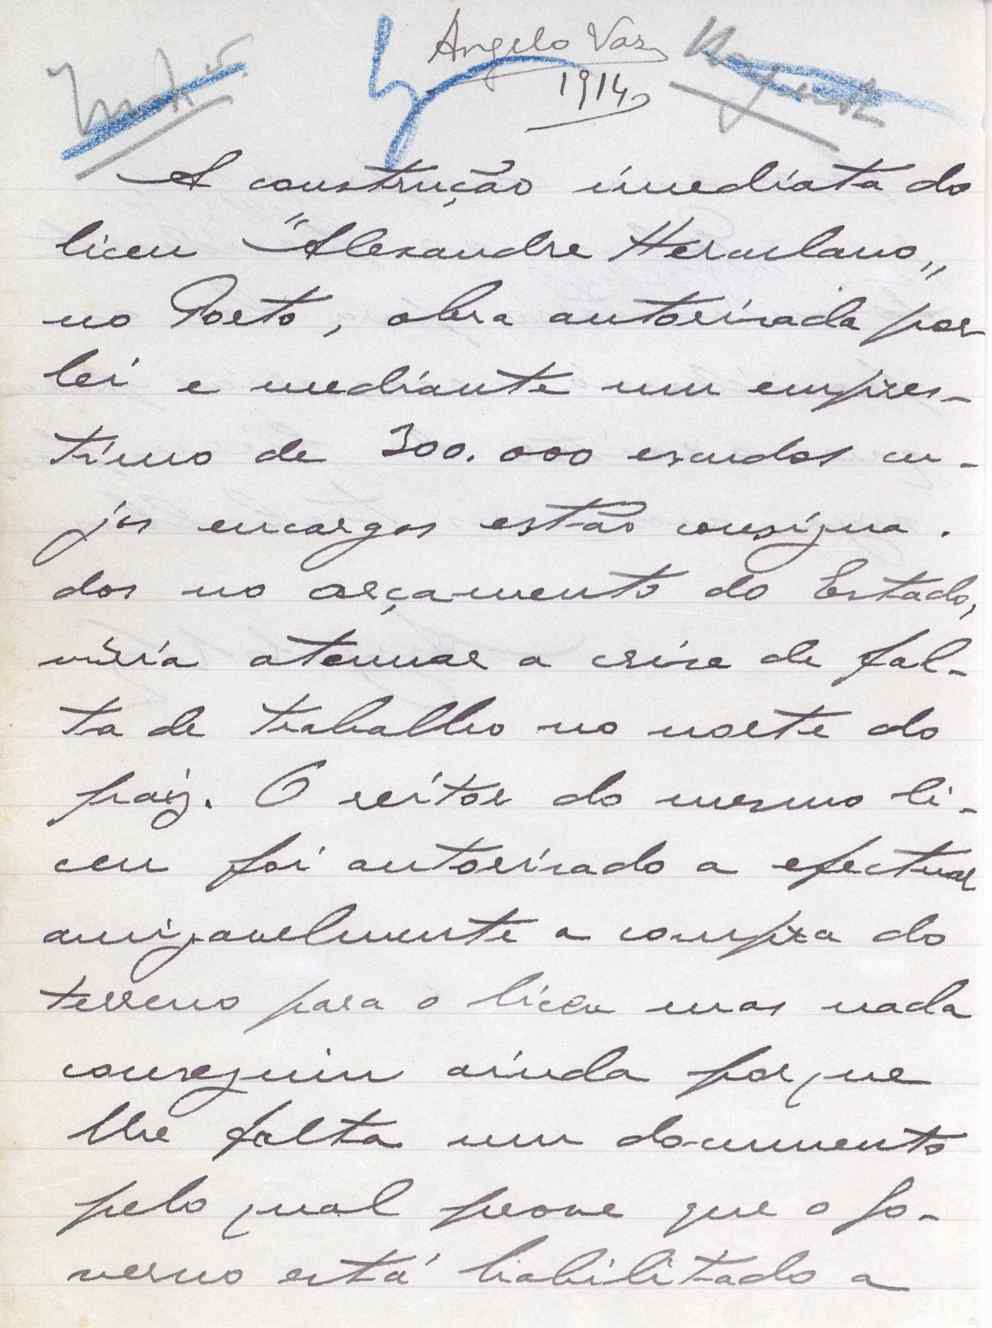 Angelo Vaz
1914
A construção imediata do
liceu "Alexandre Herculano„
no Porto, obra autorisada por
lei e mediante um empres-
timo de 300.000 escudos cu-
jos encargos estão consigna-
dos no orçamento do Estado,
viria atenuar a crise de fal-
ta de trabalho no norte do
paiz. O reitor do mesmo li-
ceu foi autorisado a efectuar
amigavelmente a compra do
terreno para o liceu mas nada
conseguiu ainda porque
lhe falta um documento
pelo qual prove que o Go-
verno está habilitado a